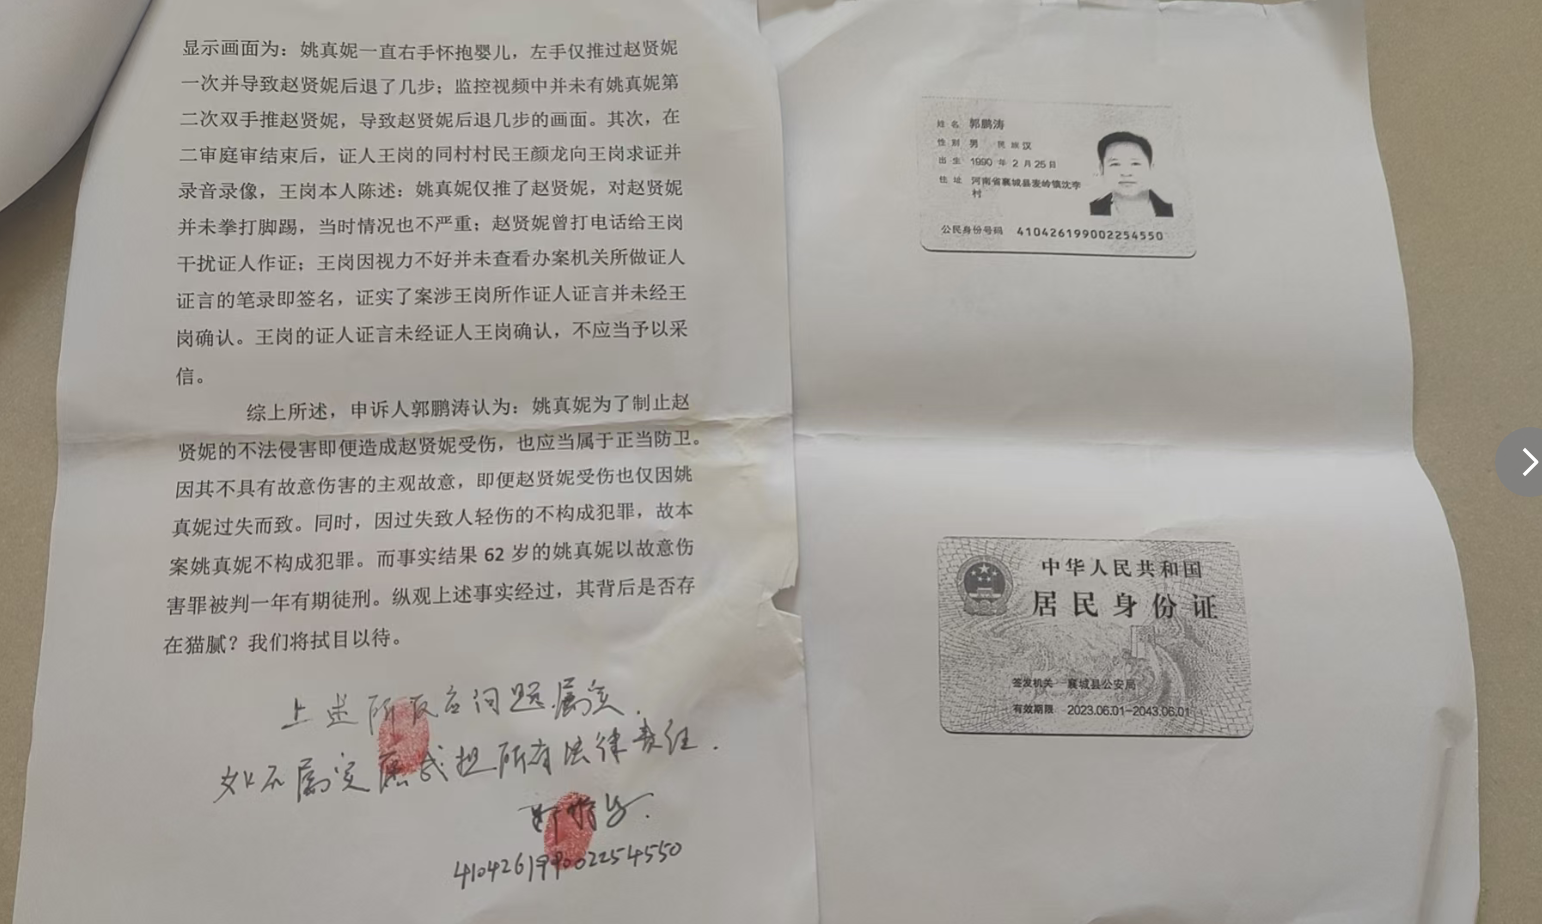 显示画面为：姚真妮一直右手怀抱婴儿，左手仅推过赵贤妮
一次并导致赵贤妮后退了几步；监控视频中并未有姚真妮第
二次双手推赵贤妮，导致赵贤妮后退几步的画面。其次，在
二审庭审结束后，证人王岗的同村村民王颜龙向王岗求证并
录音录像，王岗本人陈述：姚真妮仅推了赵贤妮，对赵贤妮
并未拳打脚踢，当时情况也不严重；赵贤妮曾打电话给王岗
干扰证人作证；王岗因视力不好并未查看办案机关所做证人
证言的笔录即签名，证实了案涉王岗所作证人证言并未经王
岗确认。王岗的证人证言未经证人王岗确认，不应当予以采
信。
综上所述，申诉人郭鹏涛认为：姚真妮为了制止赵
贤妮的不法侵害即便造成赵贤妮受伤，也应当属于正当防卫。
因其不具有故意伤害的主观故意，即便赵贤妮受伤也仅因姚
真妮过失而致。同时，因过失致人轻伤的不构成犯罪，故本
案姚真妮不构成犯罪。而事实结果 62 岁的姚真妮以故意伤
害罪被判一年有期徒刑。纵观上述事实经过，其背后是否存
在猫腻？我们将拭目以待。
上述所反应问题属实.
如不属实愿承担所有法律责任.
郭鹏涛.
410426199002254550
姓名 郭鹏涛
性别 男 民族 汉
出生 1990 年 2 月 25 日
住址 河南省襄城县麦岭镇沈李
村
公民身份号码 410426199002254550
中华人民共和国
居民身份证
签发机关 襄城县公安局
有效期限 2023.06.01-2043.06.01